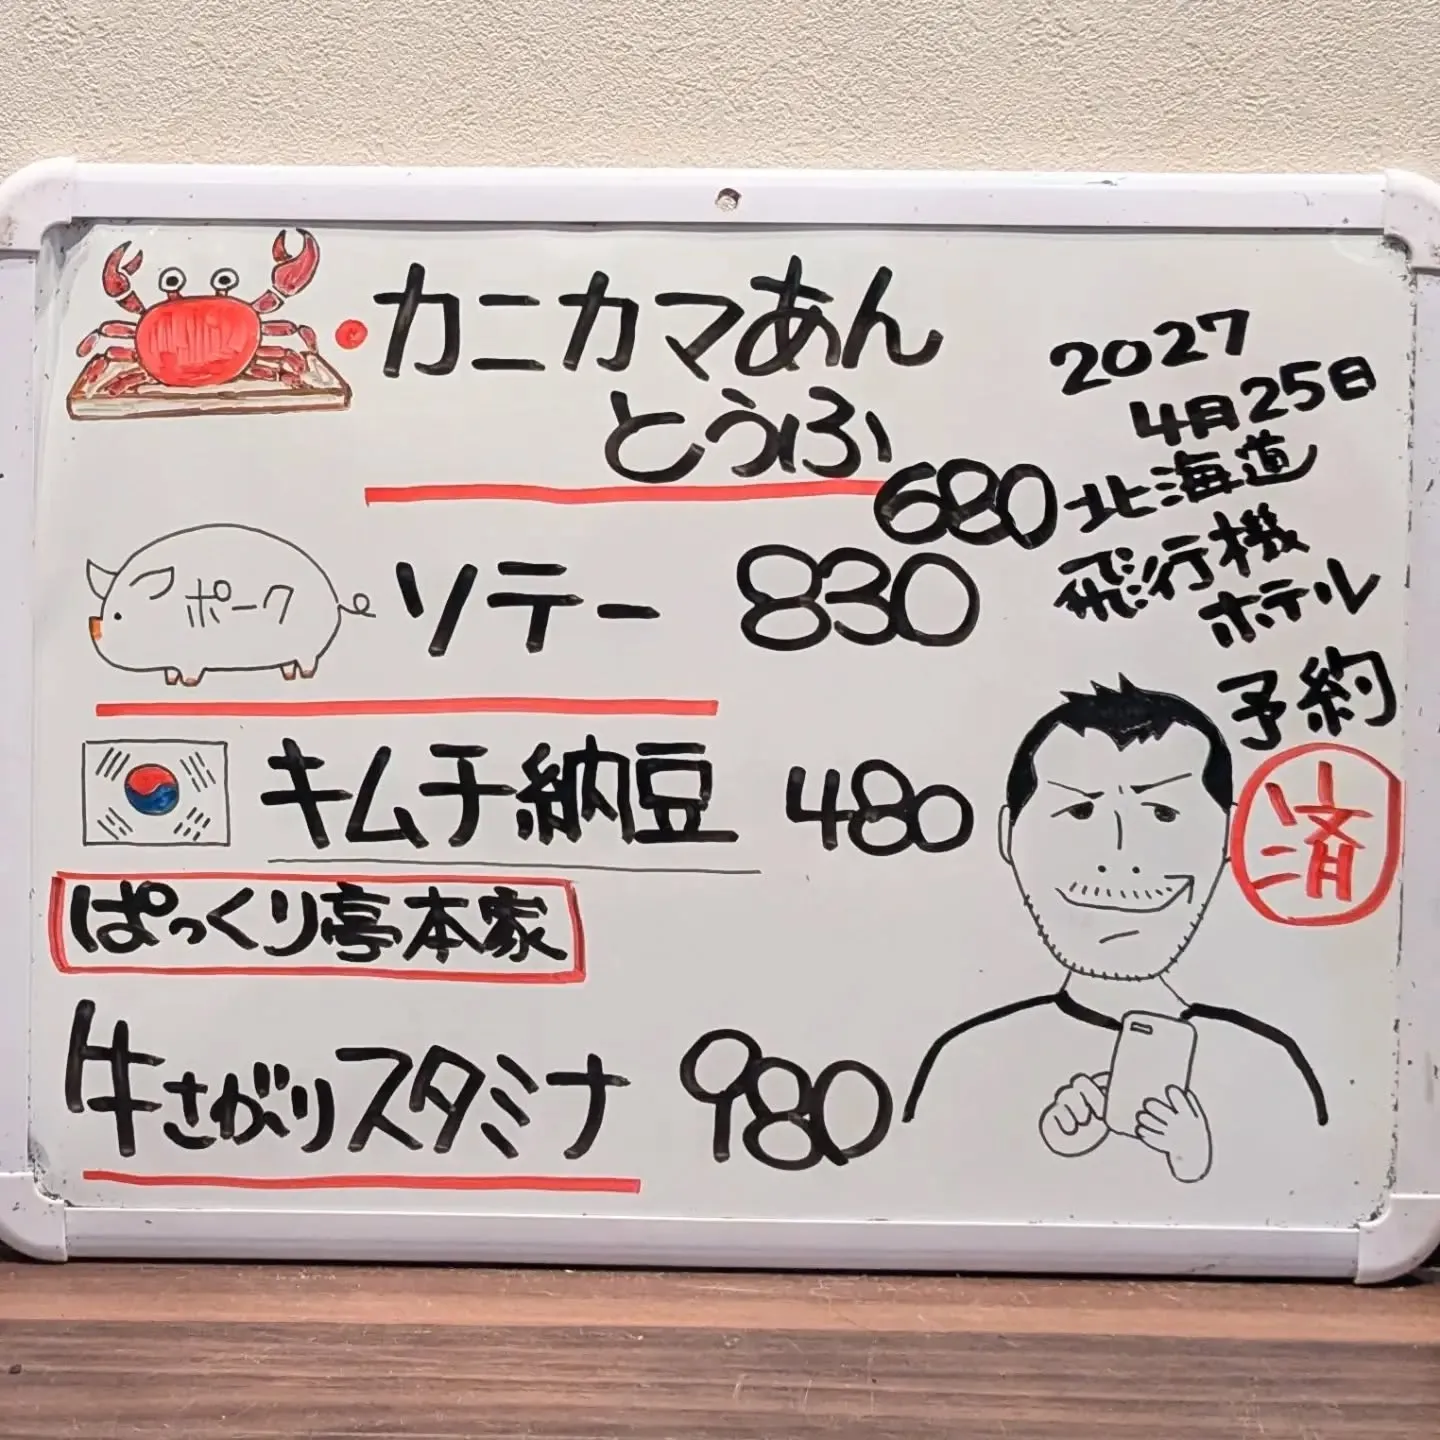 カニカマあん
とうふ
680
ポーク ソテー 830
キムチ納豆 480
ぱっくり亭本家
牛さがりスタミナ 980
2027
4月25日
北海道
飛行機
ホテル
予約
済